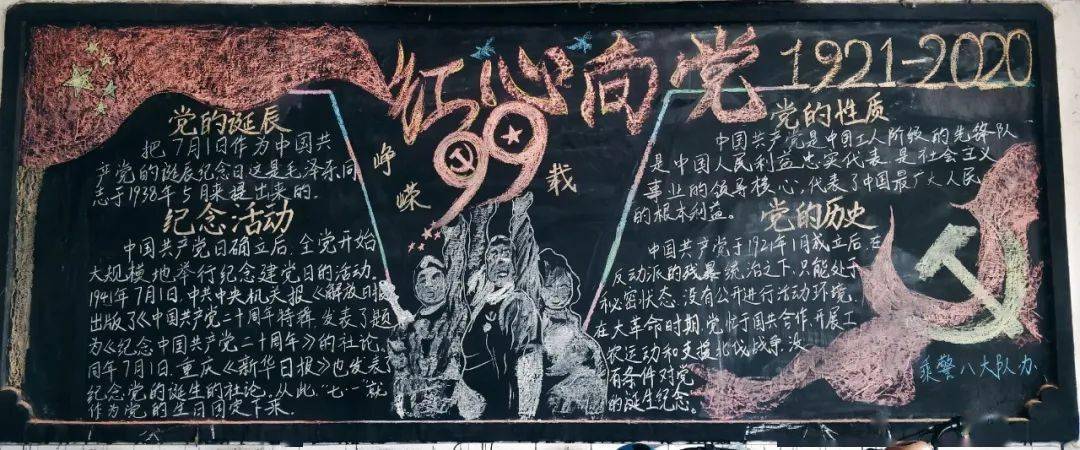 红心向党
1921-2020
99
峥嵘
载
党的诞辰
把7月1日作为中国共
产党的诞辰纪念日这是毛泽东同
志于1938年5月来提出来的.
纪念活动
中国共产党日确立后,全党开始
大规模地举行纪念建党日的活动.
1941年7月1日,中共中央机关报《解放日报
出版了《中国共产党二十周年特辑,发表了题
为《纪念中国共产党二十周年》的社论,
同年7月1日,重庆《新华日报》也发表了
纪念党的诞生的社论.从此,"七一"就
作为党的生日固定下来.
党的性质
中国共产党是中国工人阶级的先锋队
是中国人民利益忠实代表 是社会主义
事业的领导核心,代表了中国最广大人民
的根本利益。
党的历史
中国共产党于1921年1月成立后,在
反动派的残暴统治之下,只能处于
秘密状态,没有公开进行活动环境,
在大革命时期,党忙于国共合作,开展工
农运动和支援北伐战争,没
有条件对党
的诞生纪念。
乘警八大队办